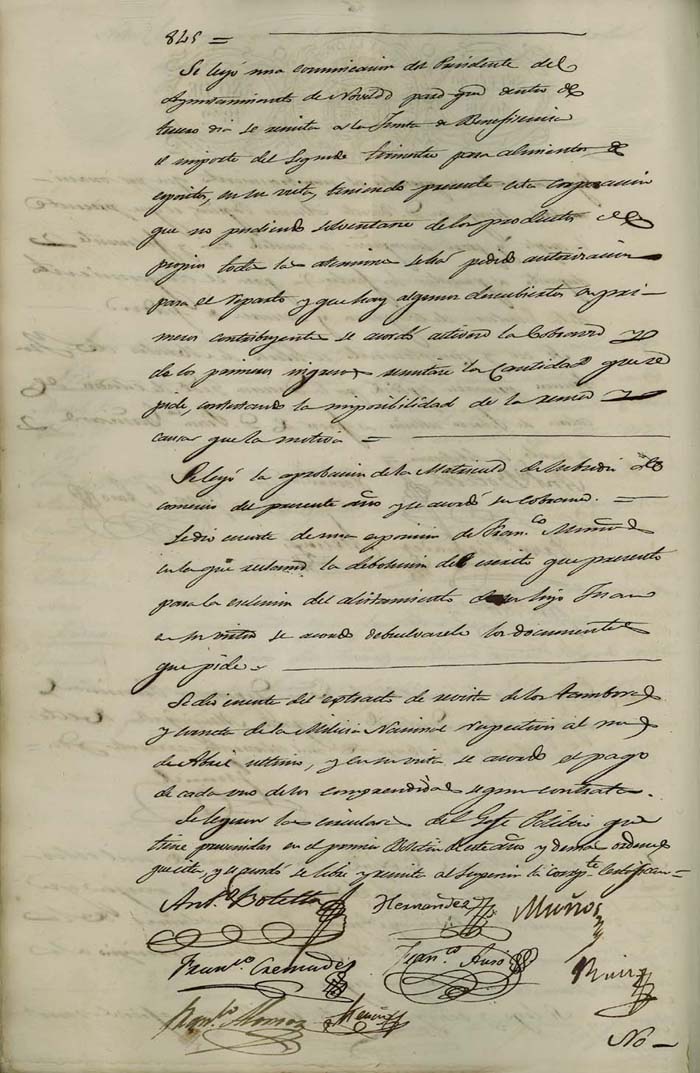 845 =
Se leyó una comunicacion del Presidente del
Ayuntamiento de Novelda para que dentro de
tercero dia se remita a la Junta de Beneficencia
el importe del segundo trimestre para alimentos de
espositos, en su vista, teniendo presente esta corporacion
que no pudiendo solventarse de los productos de
propios toda la se há pedido autorizacion
para el reparto y que hay algunos descubiertos en pri-
meros contribuyentes se acordó activar la Cobranza y
de los primeros ingresos remitir la Cantidad que se
pide, contestando la imposibilidad de la remesa y
causa que la motiva =
Se leyó la aprobacion de la Matricula de subsidio de
comercio del presente año y se acordó su Cobranza. =
Se dio cuenta de una esposicion de Fran.co Muñoz
en la que reclama la debolucion del escrito que presentó
para la esclusion del alistamiento de su hijo Juan
en su vista se acordó debolversele los documentos
que pide.
Se dio cuenta del extracto de revista de los tambores
y corneta de la Milicia Nacional respectivo al mes
de Abril ultimo, y en su vista se acordó el pago
de cada uno de los comprendidos segun contrata.
Se leyeron las circulares del Gefe Politico que
tiene prevenidas en el primer Boletin de este año y demas ordenes
que cita, y se acordó se libre y remita al Superior la corresp.te Certificacion =
Ant.o Botella Hernandez Muñoz
Fran.co Cremades Fran.co Ruiz
Alonso
No -